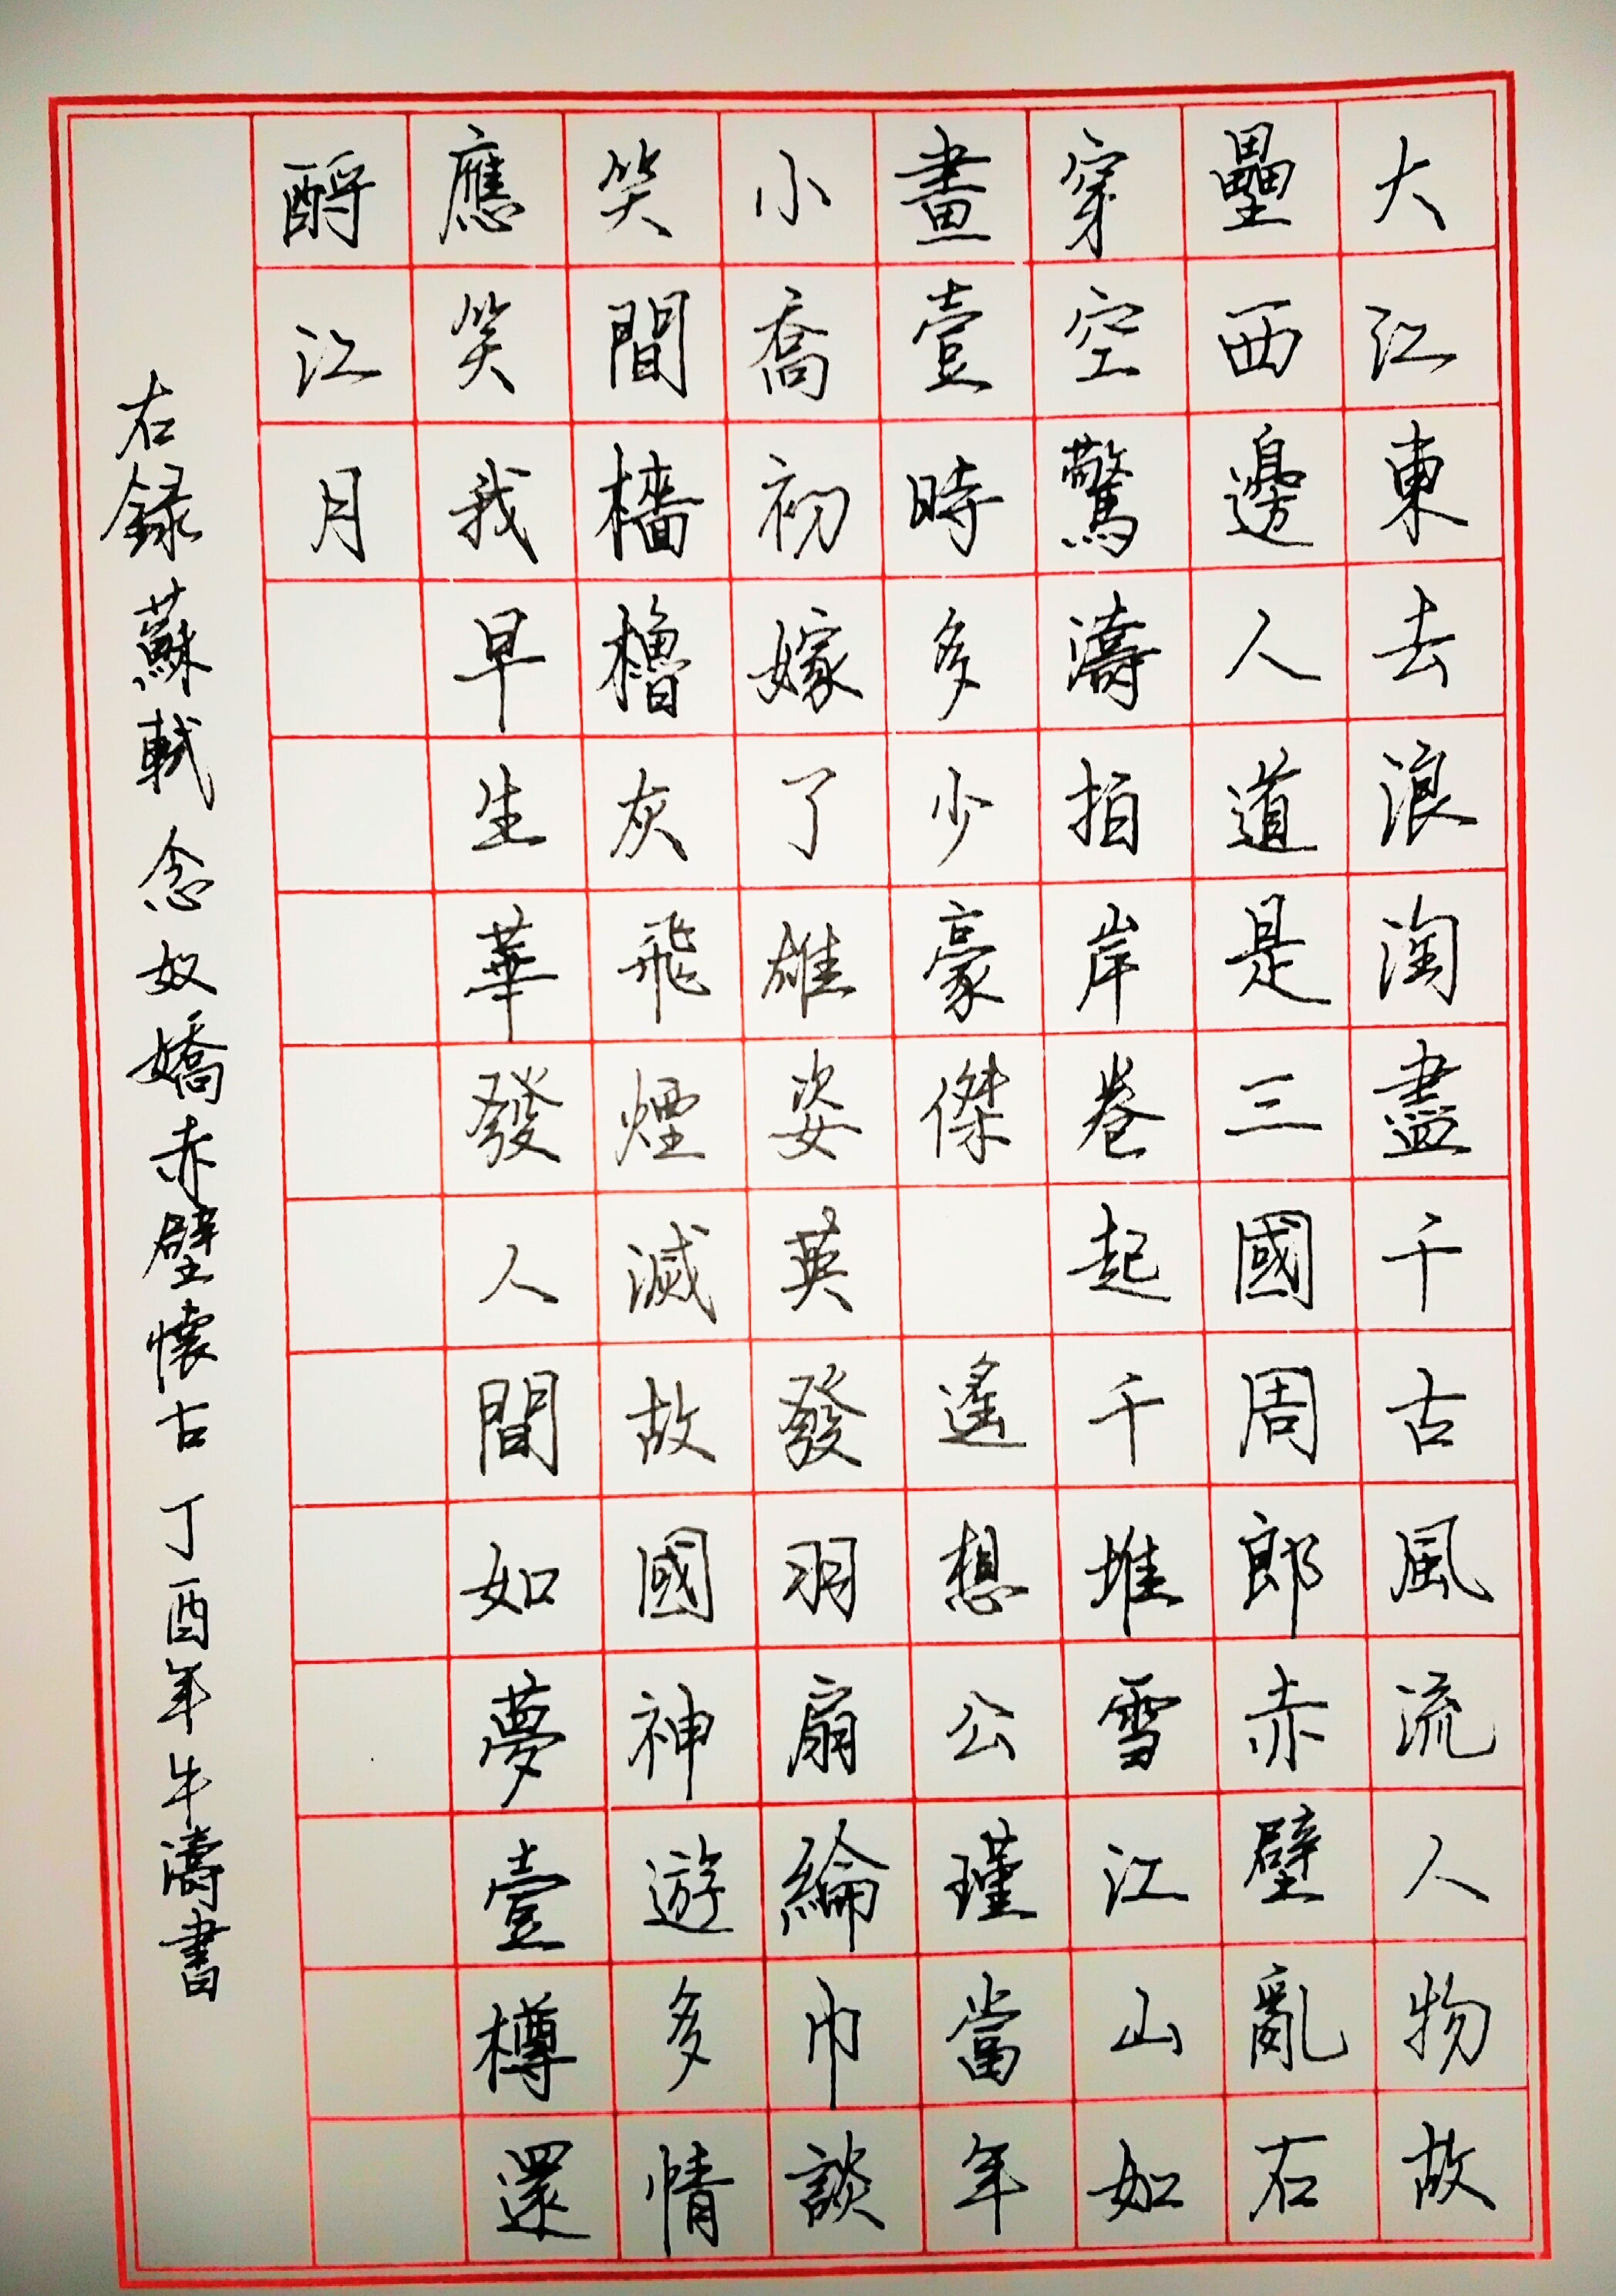 大江東去浪淘盡千古風流人物故
壘西邊人道是三國周郎赤壁亂石
穿空驚濤拍岸卷起千堆雪江山如
畫壹時多少豪傑 遙想公瑾當年
小喬初嫁了雄姿英發羽扇綸巾談
笑間檣櫓灰飛煙滅故國神遊多情
應笑我早生華發人間如夢壹樽還
酹江月
右録蘇軾念奴嬌赤壁懷古丁酉年牛濤書